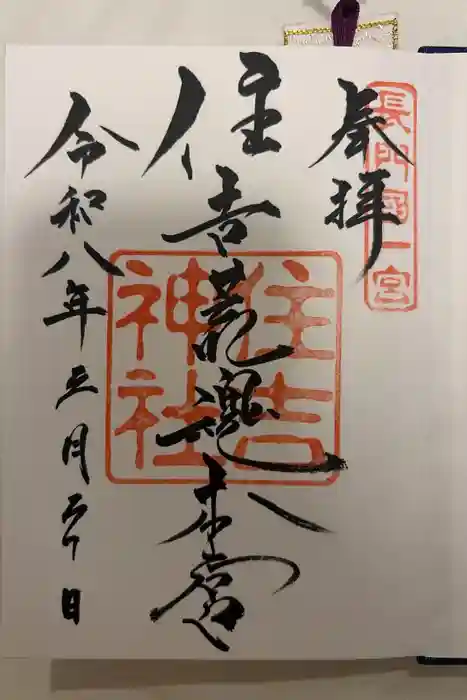 長門國一宮
奉拝
住吉荒魂本宮
住吉
神社
令和八年三月日